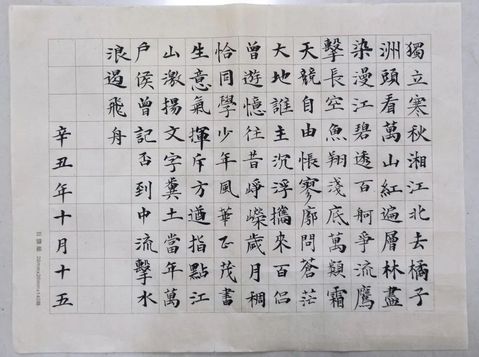 獨立寒秋湘江北去橘子
洲頭看萬山紅遍層林盡
染漫江碧透百舸爭流鷹
擊長空魚翔淺底萬類霜
天競自由悵寥廓問蒼茫
大地誰主沉浮攜來百侶
曾遊憶往昔崢嶸歲月稠
恰同學少年風華正茂書
生意氣揮斥方遒指點江
山激揚文字糞土當年萬
戶侯曾記否到中流擊水
浪遏飛舟
辛丑年十月十五